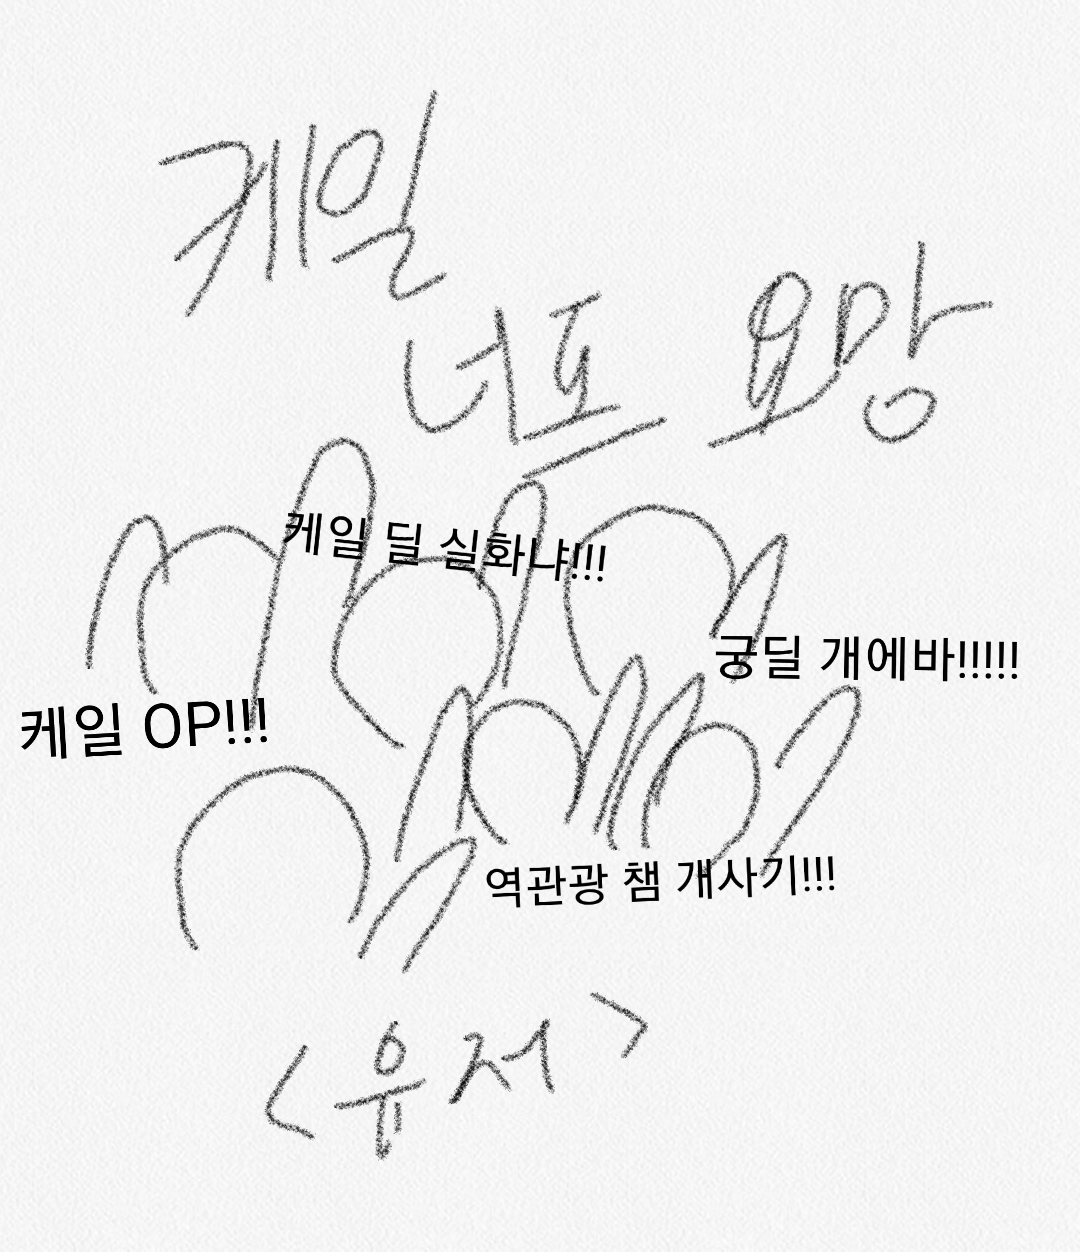 케일
너프 요망
케일 딜 실화냐!!!
궁딜 개에바!!!!!
케일 OP!!!
역관광 챔 개사기!!!
<유저>